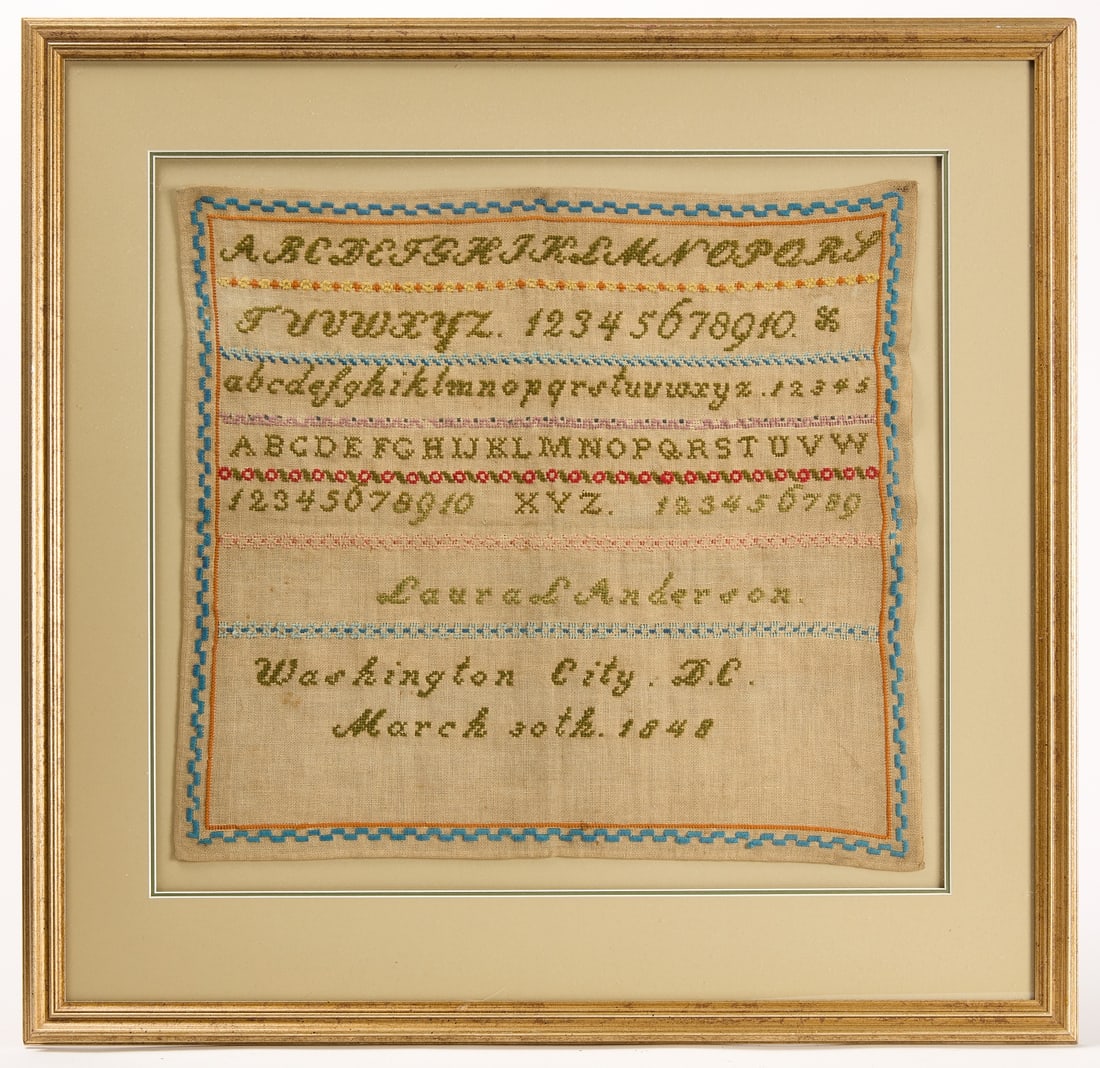 ABCDEFGHIKLMNOPQRS
TUVWXYZ. 12345678910.
abcdefghiklmnopqrstuvwxyz. 12345
ABCDEFGHIJKLMNOPQRSTUVW
12345678910 XYZ. 123456789
Laura L Anderson.
Washington City. D.C.
March 30th. 1848